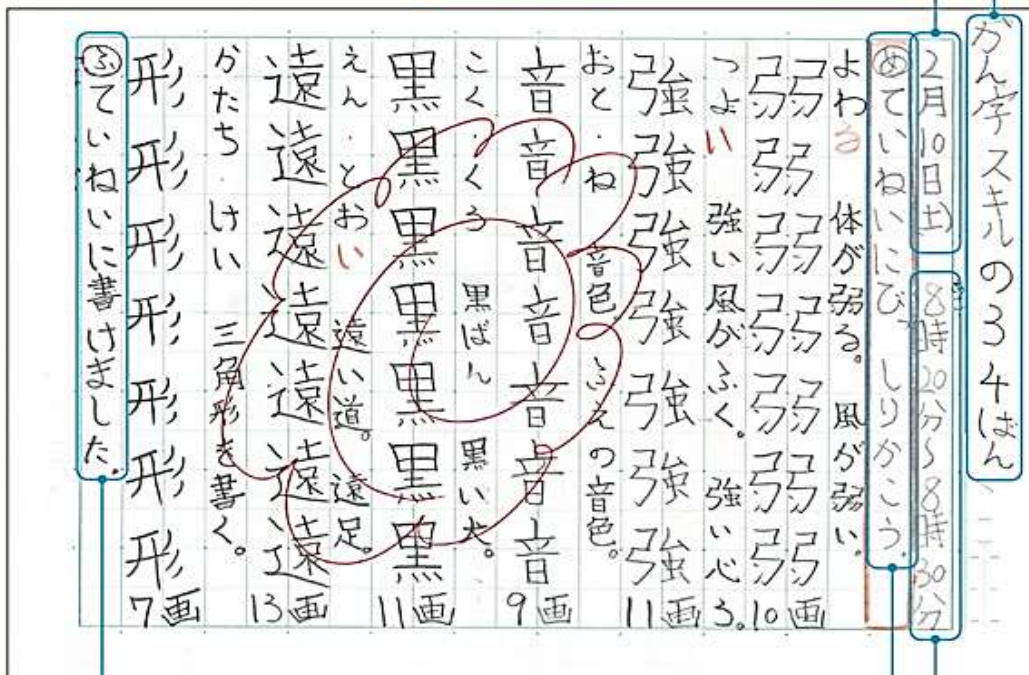 かん字スキルの34ばん
2月10日(土) 8時20分~8時30分
めていねいにびっしりかこう。
よわる 体が弱る。 風が弱い。
弱弱弱弱弱弱弱10画
つよい 強い風がふく。 強い心ろ。
強強強強強強強11画
おと・ね 音色 ふえの音色。
音音音音音音音9画
こく・くろ 黒ばん 黒い犬。
黒黒黒黒黒黒黒11画
えん・とおい 遠い道。 遠足。
遠遠遠遠遠遠遠13画
かたち・けい 三角形を書く。
形形形形形形形7画
ふていねいに書けました。